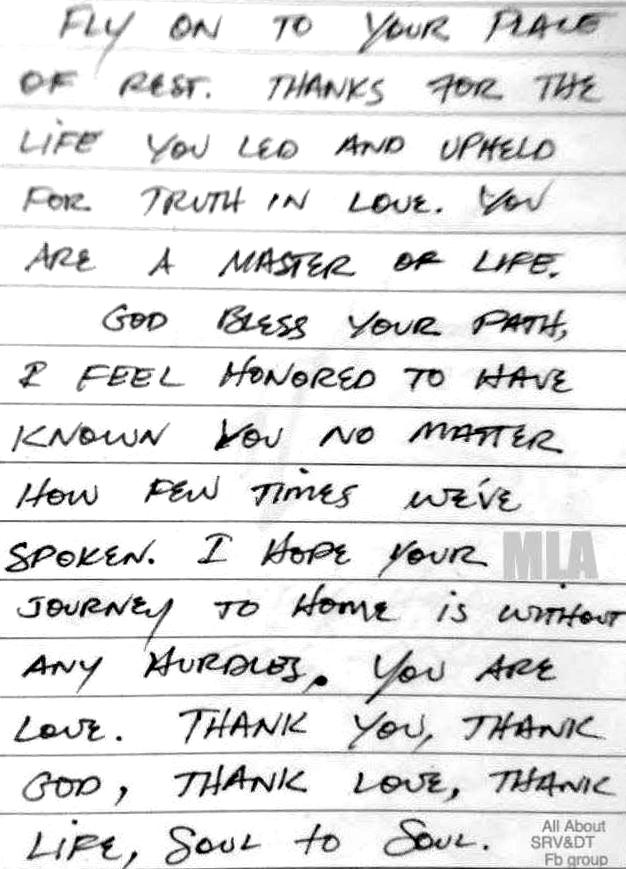 FLY ON TO YOUR PLACE
OF REST. THANKS FOR THE
LIFE YOU LED AND UPHELD
FOR TRUTH IN LOVE. YOU
ARE A MASTER OF LIFE.
GOD BLESS YOUR PATH,
I FEEL HONORED TO HAVE
KNOWN YOU NO MATTER
HOW FEW TIMES WE'VE
SPOKEN. I HOPE YOUR MLA
JOURNEY TO HOME IS WITHOUT
ANY HURDLES. YOU ARE
LOVE. THANK YOU, THANK
GOD, THANK LOVE, THANK
LIFE, SOUL TO SOUL.
All About
SRV&DT
Fb group